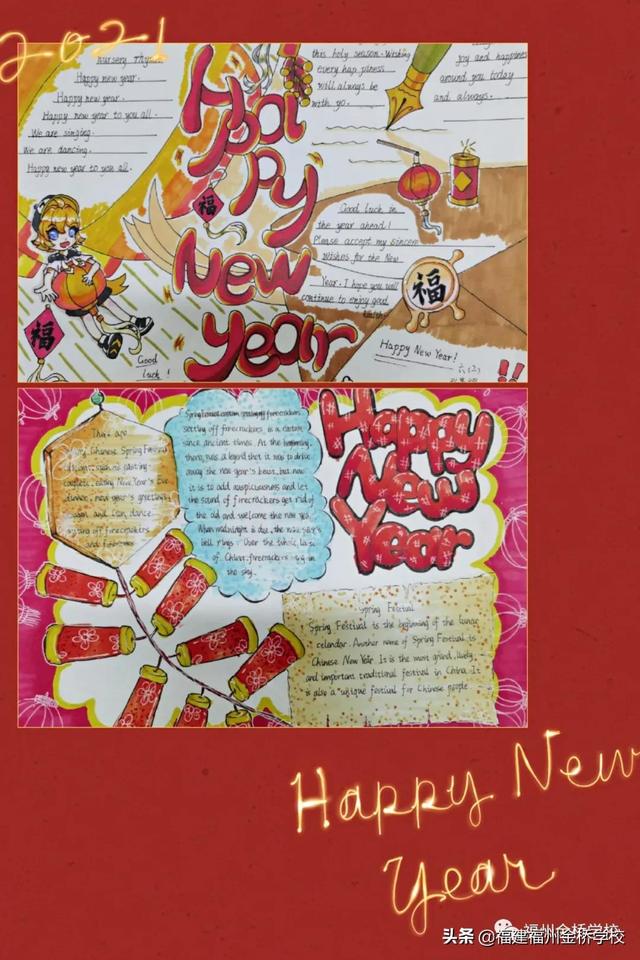 2021
Nursery rhy
Happy new year.
Happy new year.
Happy new year to you all.
We are singing.
We are dancing.
Happy new year to you all.
Happy
New
year
this holy season. Wishing
every happiness
will always be
with yo.
joy and happines
around you today
and always.
福
Good luck in
the year ahead!
Please accept my sincere
wishes for the New
Year. I hope you will
continue to enjoy good
health.
福
福
Good
luck!
Happy New Year!
六(2)
Chinese Spring Festival
custom, such as pasting
couplets, eating New Year's Eve
dinner, new year's greetings
dragon and lion dance,
setting off firecrackers
and fireworks
Spring Festival custom setting off firecrackers
setting off firecrackers is a custom
since ancient times. At the beginning,
there was a legend that it was to drive
away the new year's beast, but now
it is to add auspiciousness and let
the sound of firecrackers get rid of
the old and welcome the new year.
When midnight is due, the new year's
bell rings. Over the whole land
of China, firecrackers in
the sky.
Happy
New
Year
Spring Festival
Spring Festival is the beginning of the lunar
calendar. Another name of Spring Festival is
Chinese New Year. It is the most grand, lively,
and important traditional festival in China. It
is also a unique festival for Chinese people
Happy New
Year
福州金桥学校
头条 @福建福州金桥学校